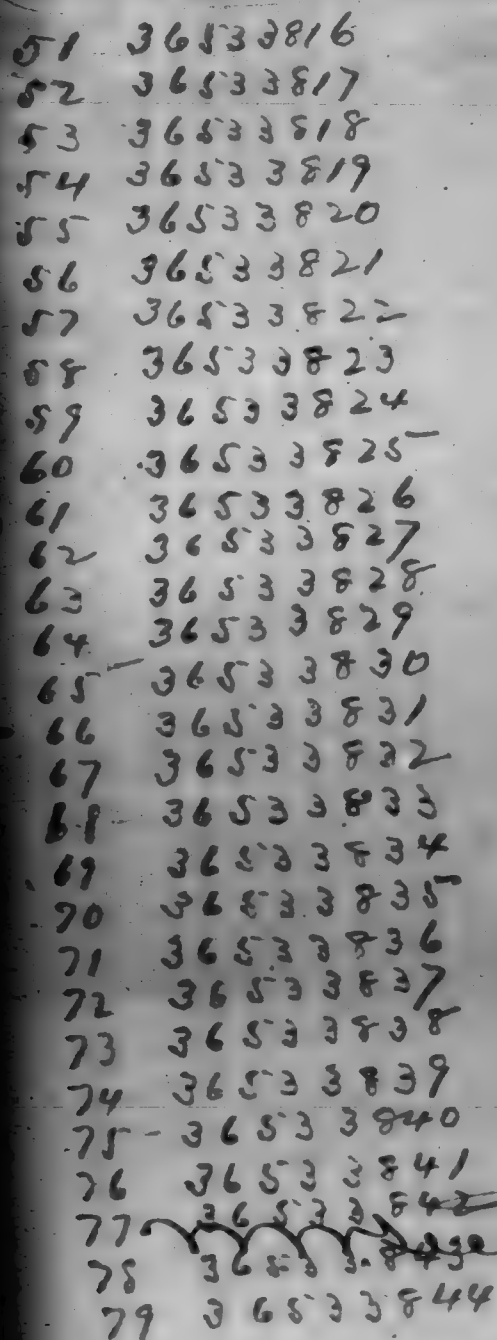 51 36533816
52 36533817
53 36533818
54 36533819
55 36533820
56 36533821
57 36533822
58 36533823
59 36533824
60 36533825
61 36533826
62 36533827
63 36533828
64 36533829
65 36533830
66 36533831
67 36533832
68 36533833
69 36533834
70 36533835
71 36533836
72 36533837
73 36533838
74 36533839
75 36533840
76 36533841
77 36533842
78 36533843
79 36533844